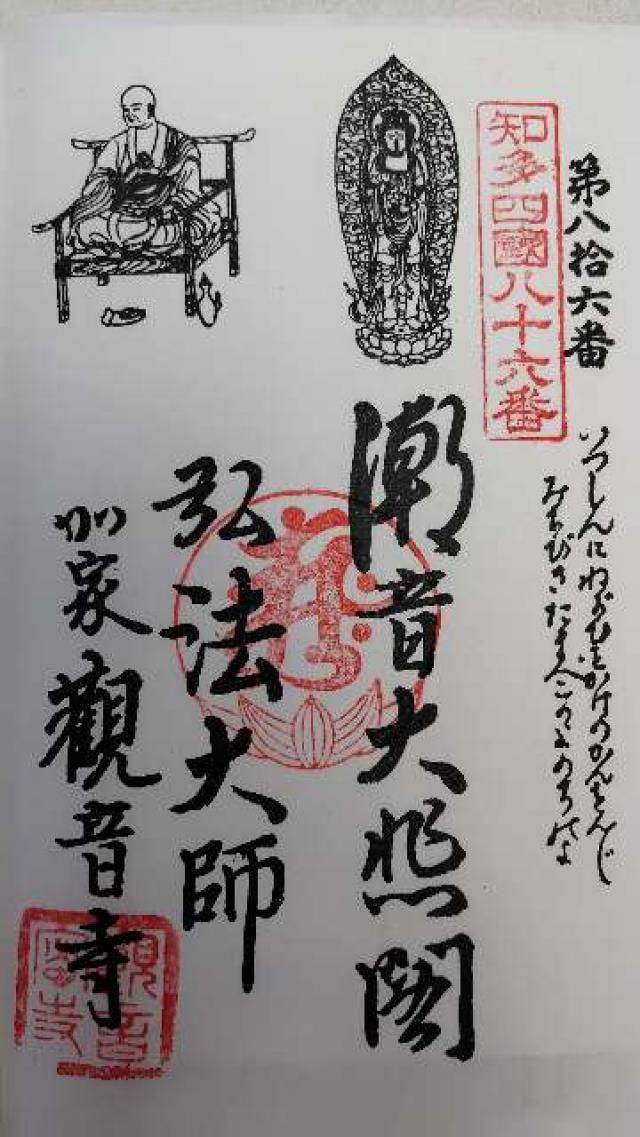 第八拾六番
知多四國八十六番
いつしんにねがひをかけのかんをんじ
みちびきたまへこのよのちのよ
潮音大悲閣
弘法大師
加家觀音寺